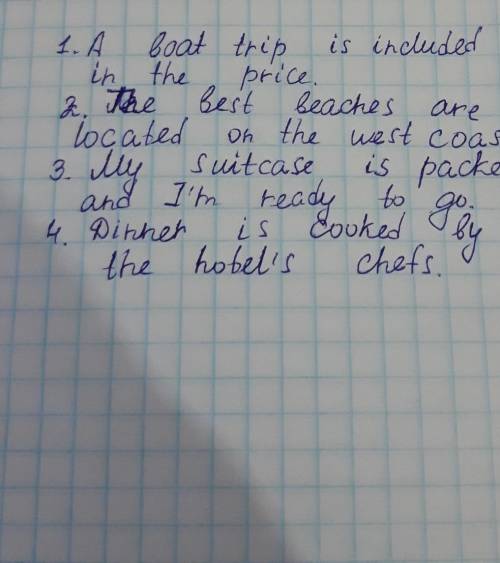 1. A boat trip is included
in the price.
2. The best beaches are
located on the west coas
3. My suitcase is packe
and I'm ready to go.
4. Dinner is cooked by
the hotel's chefs.